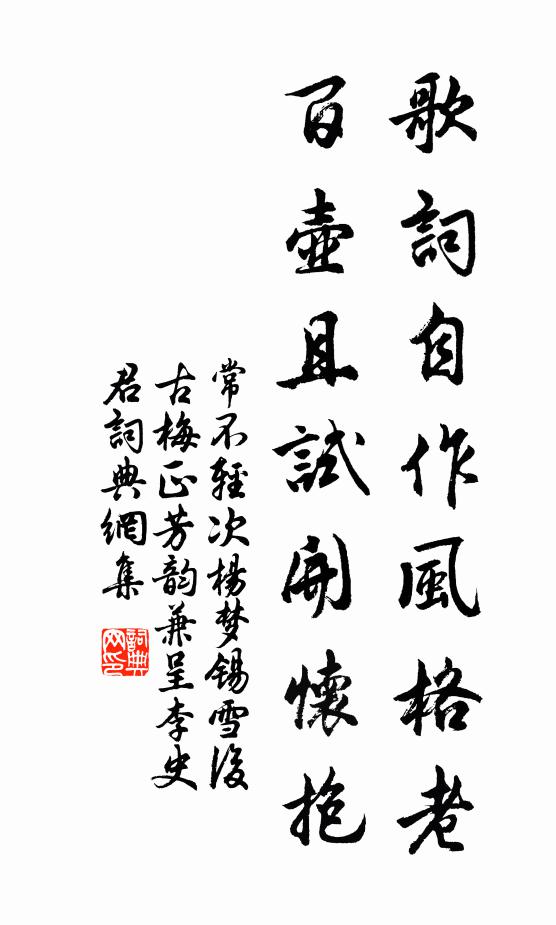 歌詞自作風格老
百壺且試開懷抱
常不輕次楊梦錫雪後
古梅正芳韵兼呈李史
君詞典網集
詞典
网印